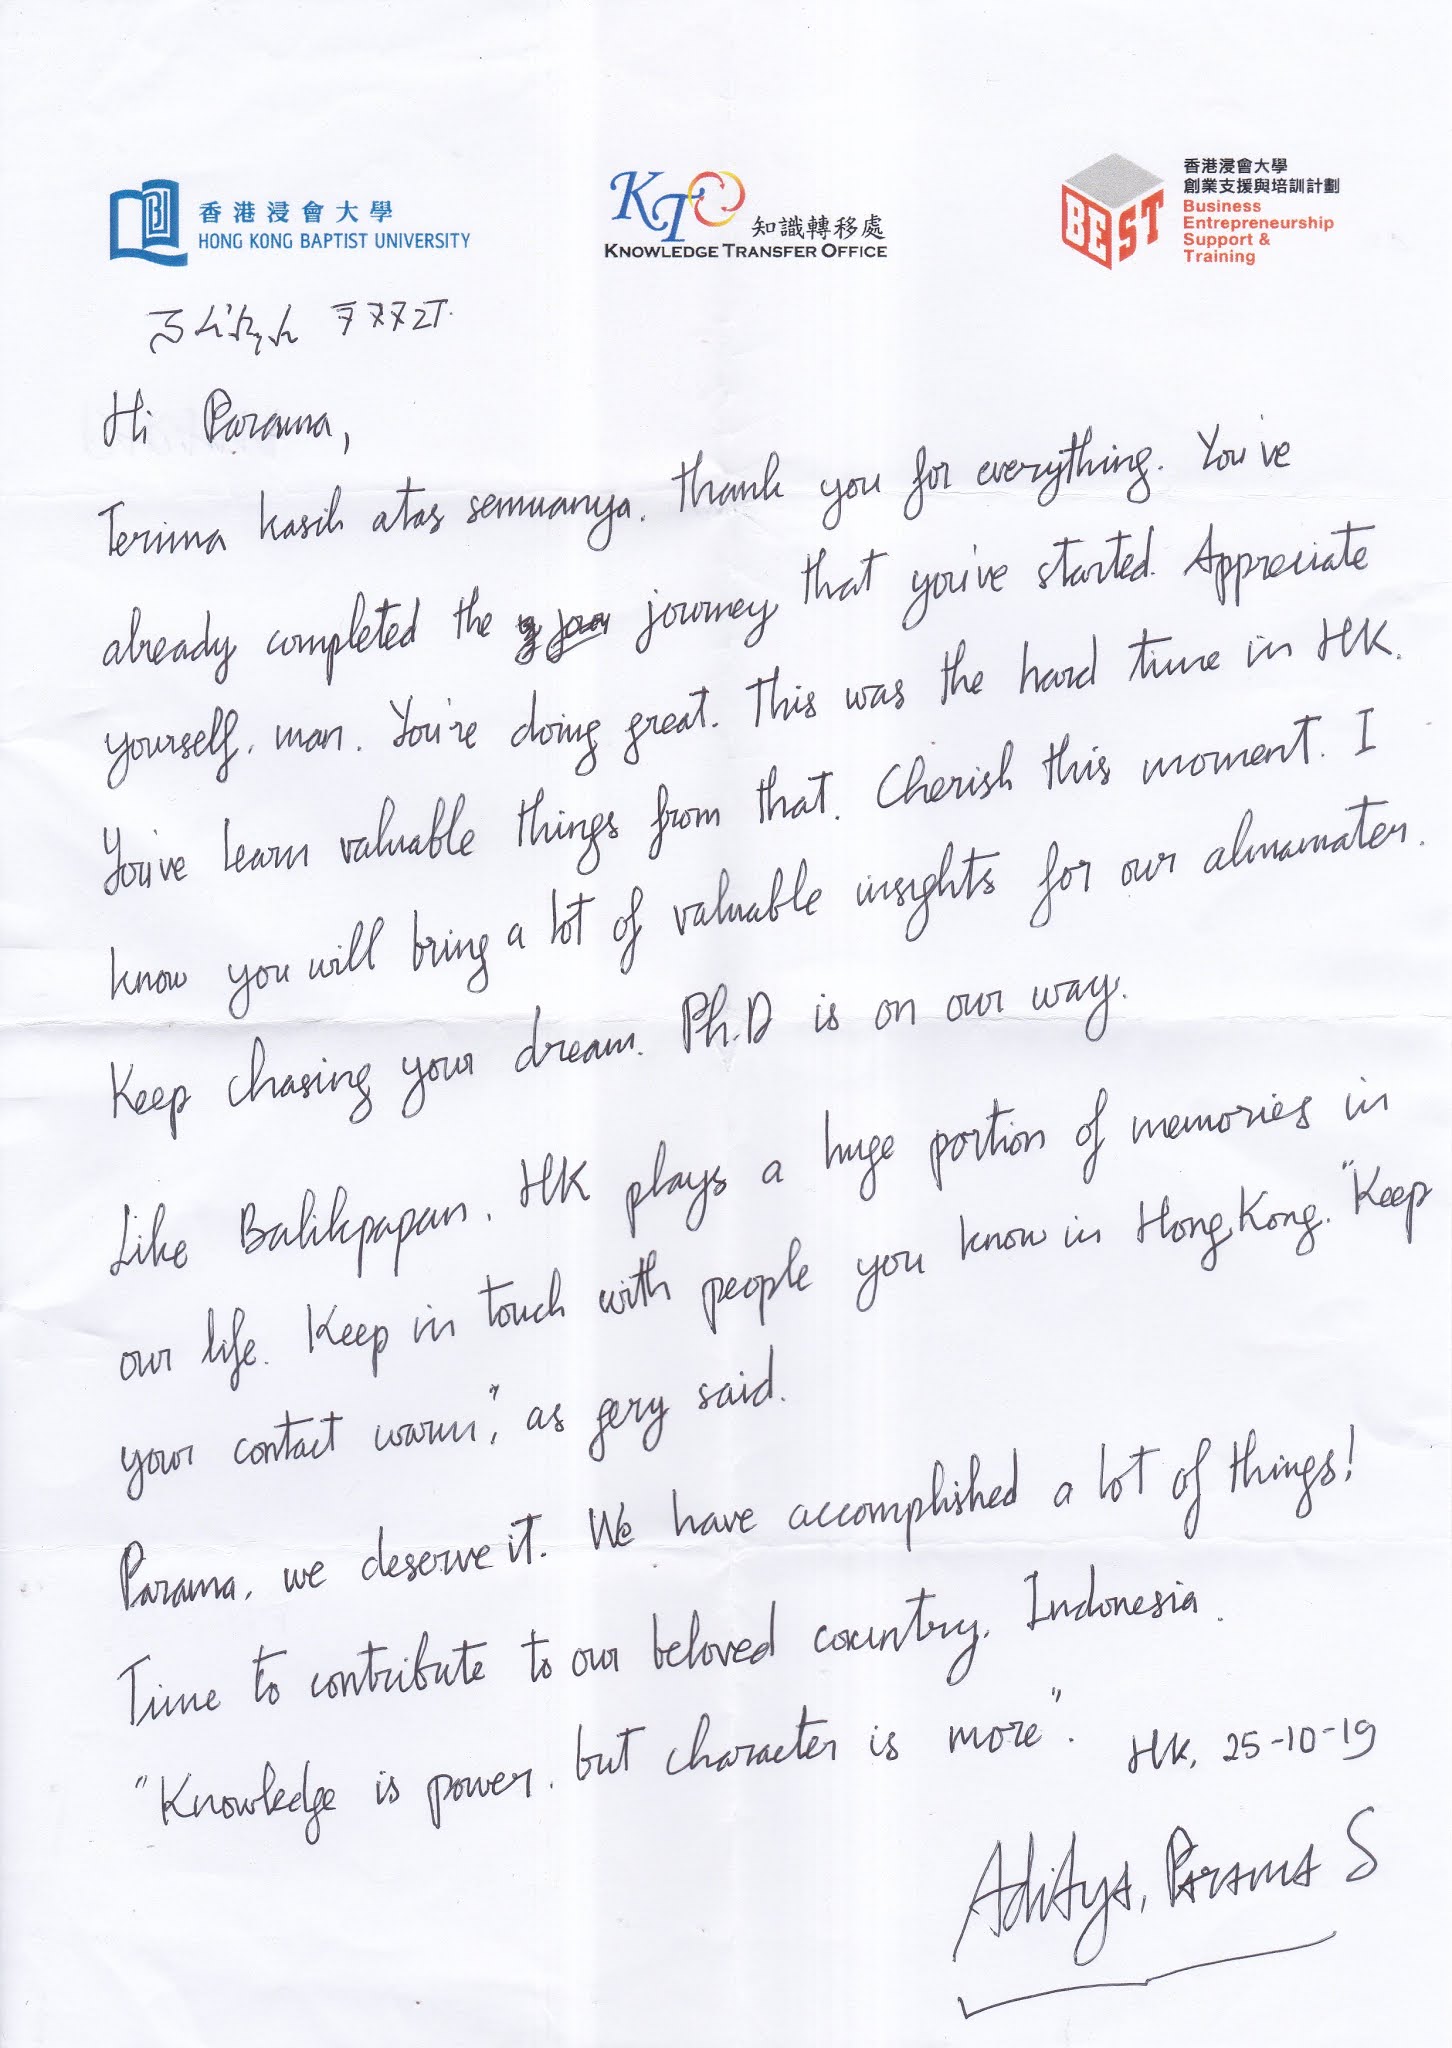 香港浸會大學
HONG KONG BAPTIST UNIVERSITY
KTO
知識轉移處
KNOWLEDGE TRANSFER OFFICE
BEST
香港浸會大學
創業支援與培訓計劃
Business
Entrepreneurship
Support &
Training
Hi Parama,
Terima kasih atas semuanya. Thank you for everything. You've
already completed the journey that you've started. Appreciate
yourself, man. You're doing great. This was the hard time in HK.
You've learn valuable things from that. Cherish this moment. I
know you will bring a lot of valuable insights for our almamater.
Keep chasing your dream. Ph.D is on our way.
Like Balikpapan, HK plays a huge portion of memories in
our life. Keep in touch with people you know in Hong Kong. "Keep
your contact warm", as gery said.
Parama, we deserve it. We have accomplished a lot of things!
Time to contribute to our beloved country, Indonesia.
"Knowledge is power, but character is more".
HK, 25-10-19
Aditya, Parama S